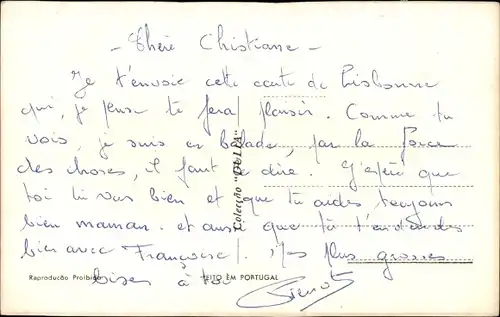 - Chère Chistiane -
Je t'envoie cette carte de Lisbonne
qui, je pense te fera plaisir. Comme tu
vois, je suis en balade, par la force
des choses, il faut le dire. J'espère que
toi tu vas bien et que tu aides toujours
bien maman. et aussi que tu t'entendes
bien avec Françoise. Mes plus grosses
bises à toi
Colecção "DULIA"
Reprodução Proibida
FEITO EM PORTUGAL